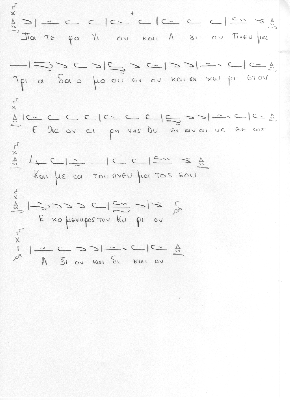 Πα τε ρα Υι ον και Α γι ον Πνευ μα
Τρι α δα ο μο ου σι ον και α χω ρι στον
Ε λε ον ει ρη νης θυ σι αν αι νε σε ως
Και με τα του πνευ μα τος σου
Ε χο μεν προς τον Κυ ρι ον
Α ξι ον και δι και ον